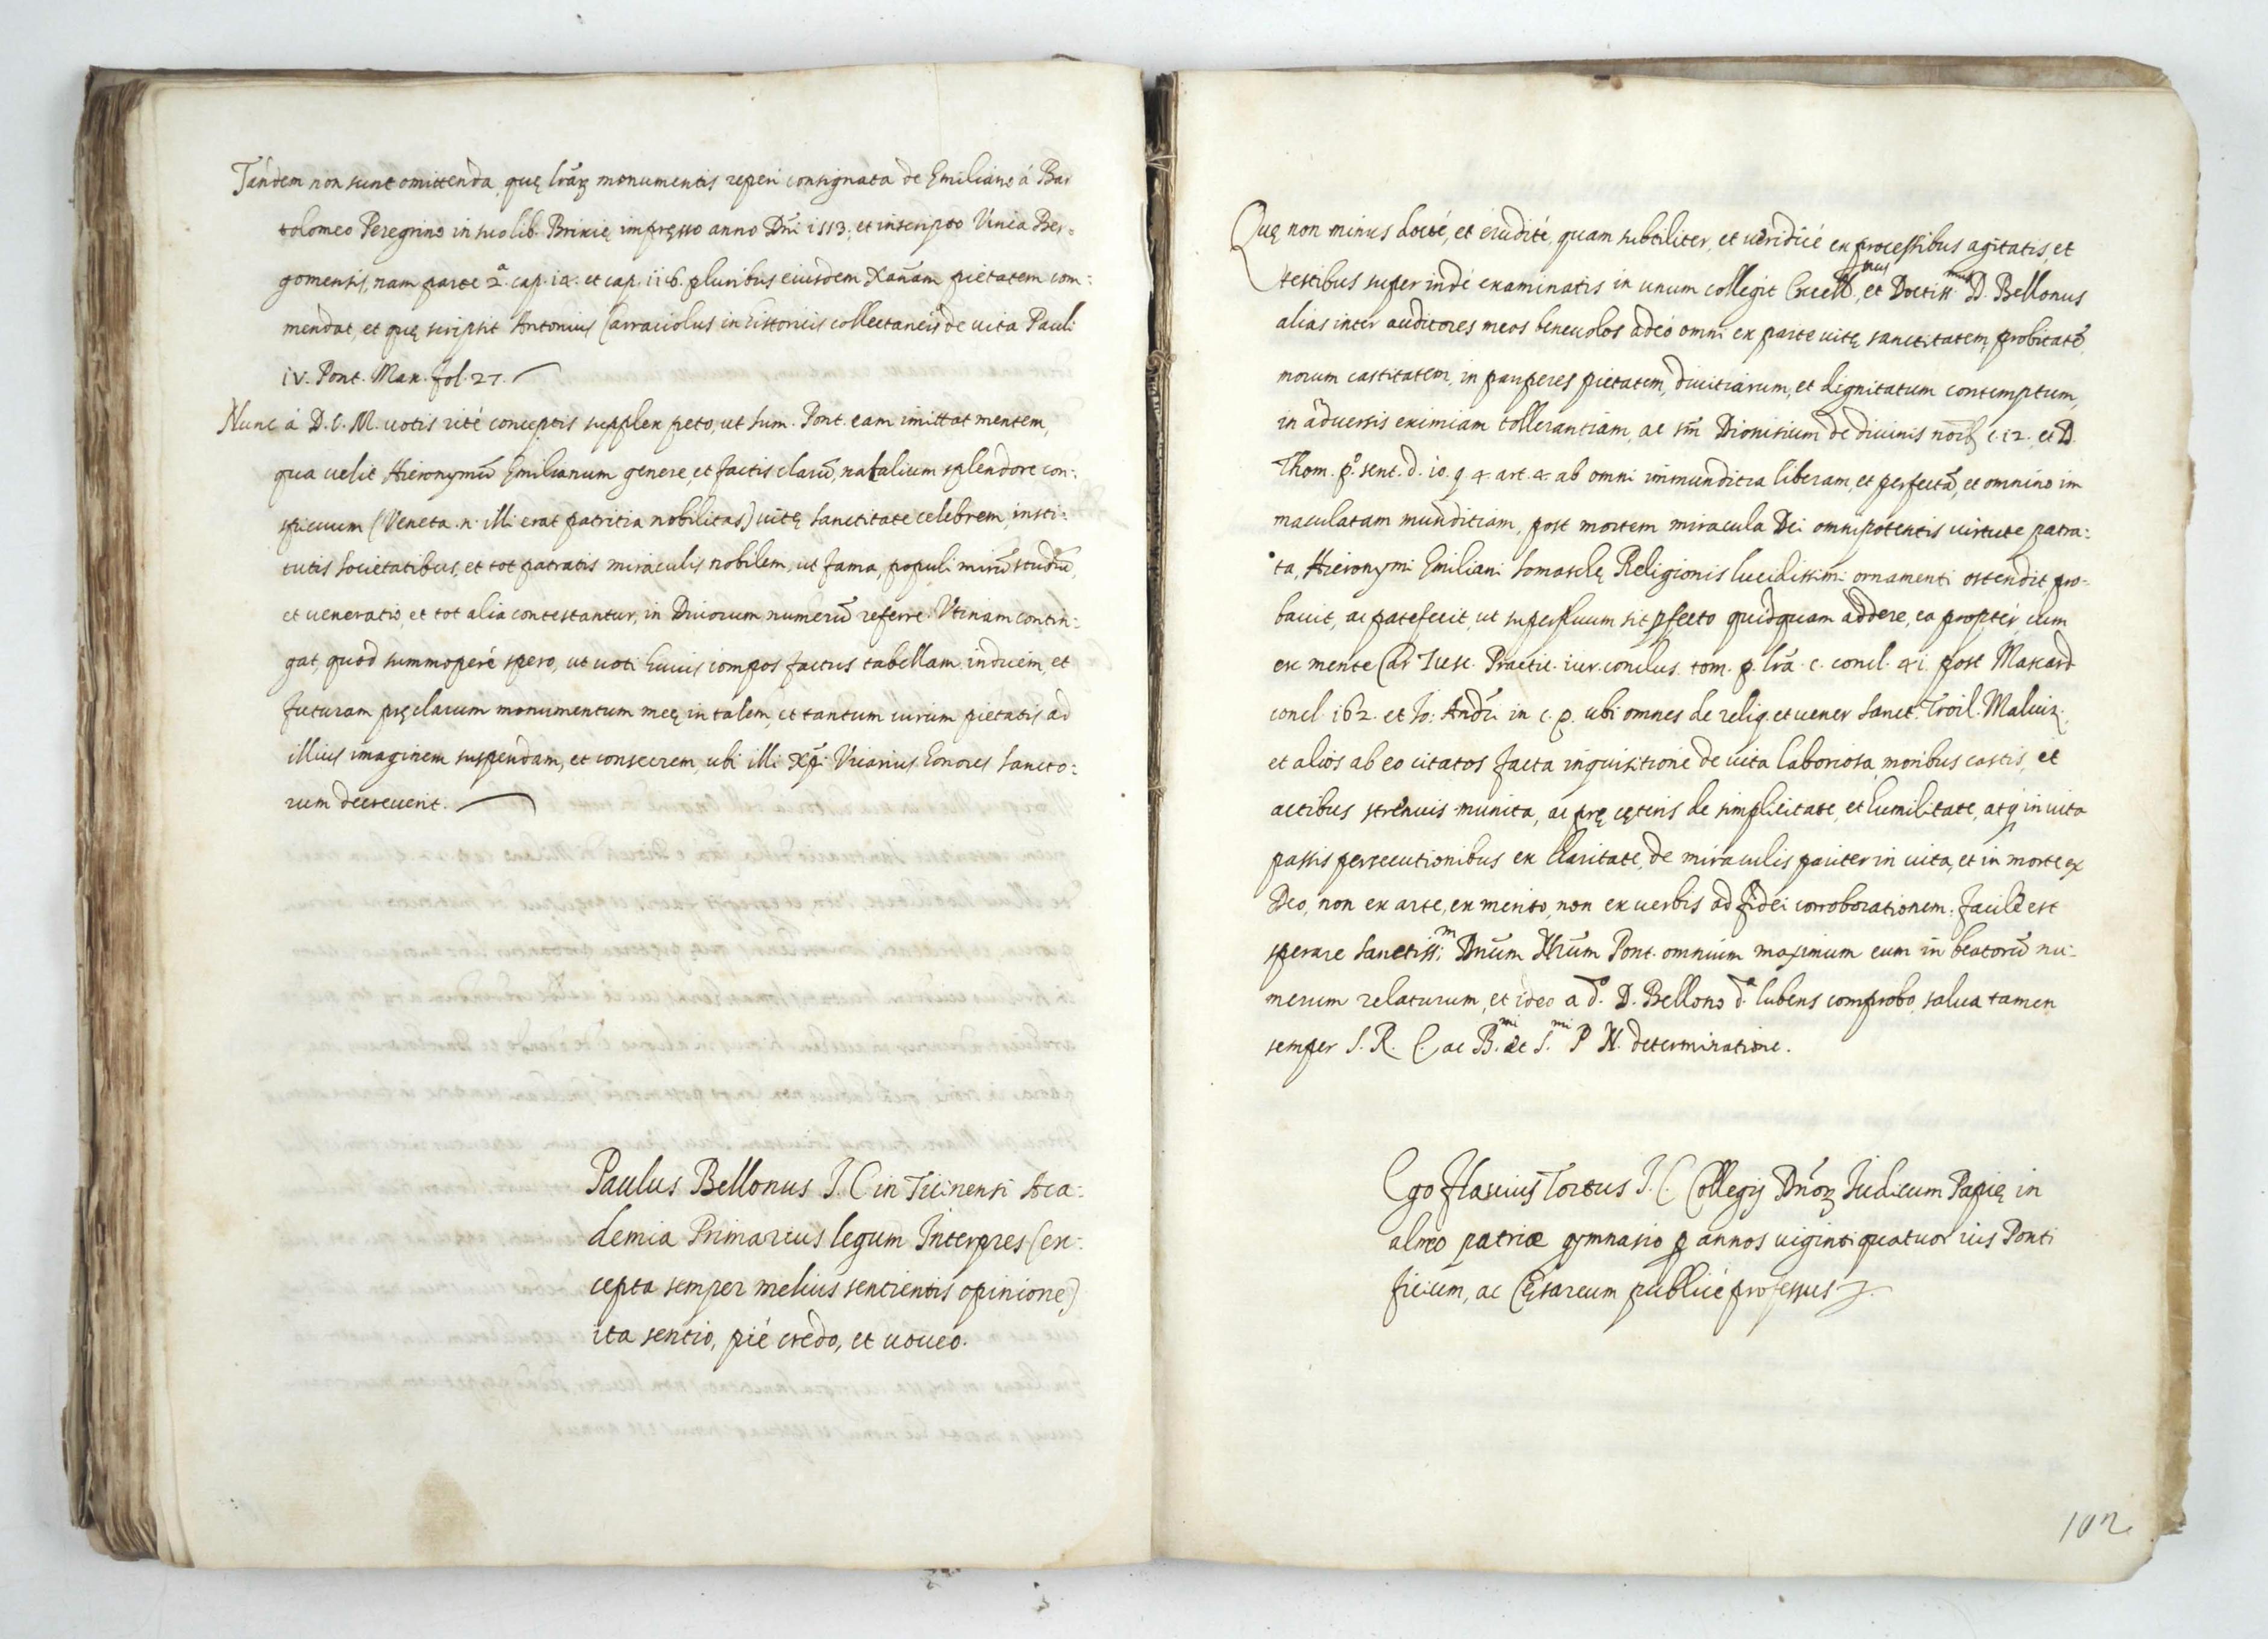 Tandem non sunt omittenda, quę lrãꝝ monumentis reperi consignata de Emiliano á Bar
tolomeo Peregrino in suo lib. Brixię impręsso anno Dnĩ 1553. et inscripto Vinea Ber=
gomensis, nam parte 2.ª cap. 14. et cap. 116. pluribus eiusdem Xañam pietatem com=
mendat, et quę scripsit Antonius Carraciolus in historicis collectaneis de uita Pauli
iv. Pont. Max. fol. 27.
Nunc á D. O. M. uotis rité conceptis supplex peto, ut Sum. Pont. eam imittat mentem,
qua uelit Hieronymũ Emilianum genere, et factis clarũ, natalium splendore con=
spicuum (Veneta .n. illi erat patritia nobilitas) uitę sanctitate celebrem, insti=
tutis societatibus, et tot patratis miraculis nobilem, ut fama, populi mirũ studiũ,
et ueneratio, et tot alia contestantur, in Diuorum numerũ referre. Vtinam contin=
gat, quod summoperé spero, ut uoti huius compos factus tabellam inducim, et
futuram pręclarum monumentum meę in talem, et tantum uirum pietatis ad
illius imaginem suspendam, et consecrem, ubi illi Xp̃i Vicarius honores Sancto=
rum decreuerit.
Paulus Bellonus J. C. in Ticinensi Aca=
demia Primarius legum Interpres (ex=
cepta semper melius sentientis opinione)
ita sentio, pié credo, et uoueo.
Quę non minus docté, et erudité, quam subtiliter, et ueridicé ex processibus agitatis, et
testibus super indé examinatis in unum collegit Excell.mus, et Doctiss.mus D. Bellonus
alias inter auditores meos beneuolos adeo omni ex parte uitę sanctitatem, probitatẽ,
morum castitatem, in pauperes pietatem, diuitiarum, et dignitatum contemptum,
in aduersis eximiam tollerantiam, ac sm̃ Dionisium de diuinis noiḃ c. 12. et D.
Thom. pº. sent. d. 10. q. 4. art. 4. ab omni immunditia liberam, et perfectã, et omnino im
maculatam munditiam, post mortem miracula Dei omnipotentis uirtute patra=
ta, Hieronymi Emiliani Somaschę Religionis lucidissimi ornamenti ostendit, pro=
bauit, ac patefecit, ut superfluum sit ꝓfecto quidquam addere, ea propter, cum
ex mente Car Tusc. Practic. iur. conclus. tom. p. lrã. c. concl. 41. post Mascard
concl. 162. et Io: Andr̃. in c. p. ubi omnes de reliq. et uener Sanct. Troil. Maluiz.
et alios ab eo citatos facta inquisitione de uita laboriosa, moribus castis, et
actibus strenuis munita, ac prę cęteris de simplicitate, et humilitate, atq; in uita
passis persecutionibus ex charitate, de miraculis pariter in uita, et in morte ex
Deo, non ex arte, ex merito, non ex uerbis ad fidei corroborationem: facile est
sperare Sanctiss:m Dnũm Nrũm Pont. omnium maximum eum in beatorũ nu=
merum relaturum, et ideo a dº. D. Bellono dª. lubens comprobo, salua tamen
semper S. R. E. ac B.mi et S.mi P. N. determinatione.
Ego Flauius Tortus J. C. Collegij Dnõꝝ Iudicum Papię in
almo patriæ gymnasio ꝑ annos uiginti quatuor ius Ponti
ficium, ac Cęsareum publicé professus
102